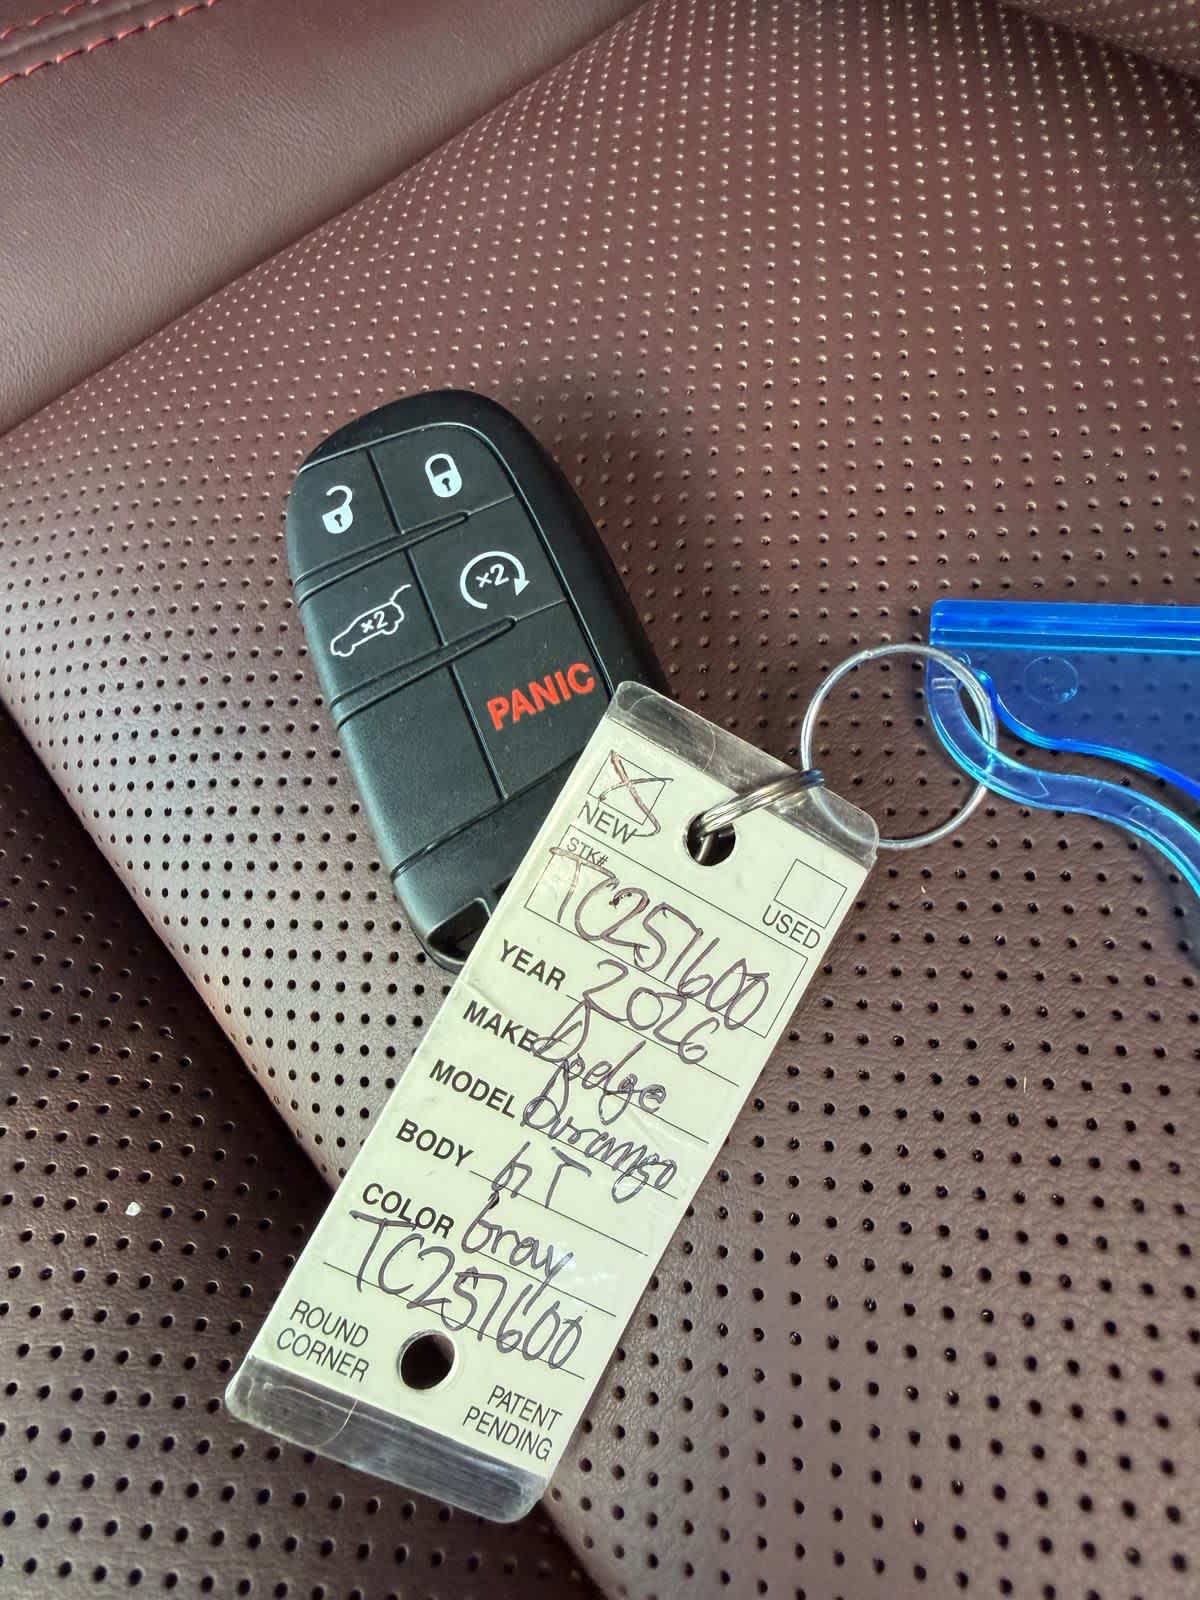 ×2
×2
PANIC
NEW
USED
STK#
TC257600
YEAR 2026
MAKE Dodge
MODEL Durango
BODY GT
COLOR Gray
TC257600
ROUND
CORNER
PATENT
PENDING